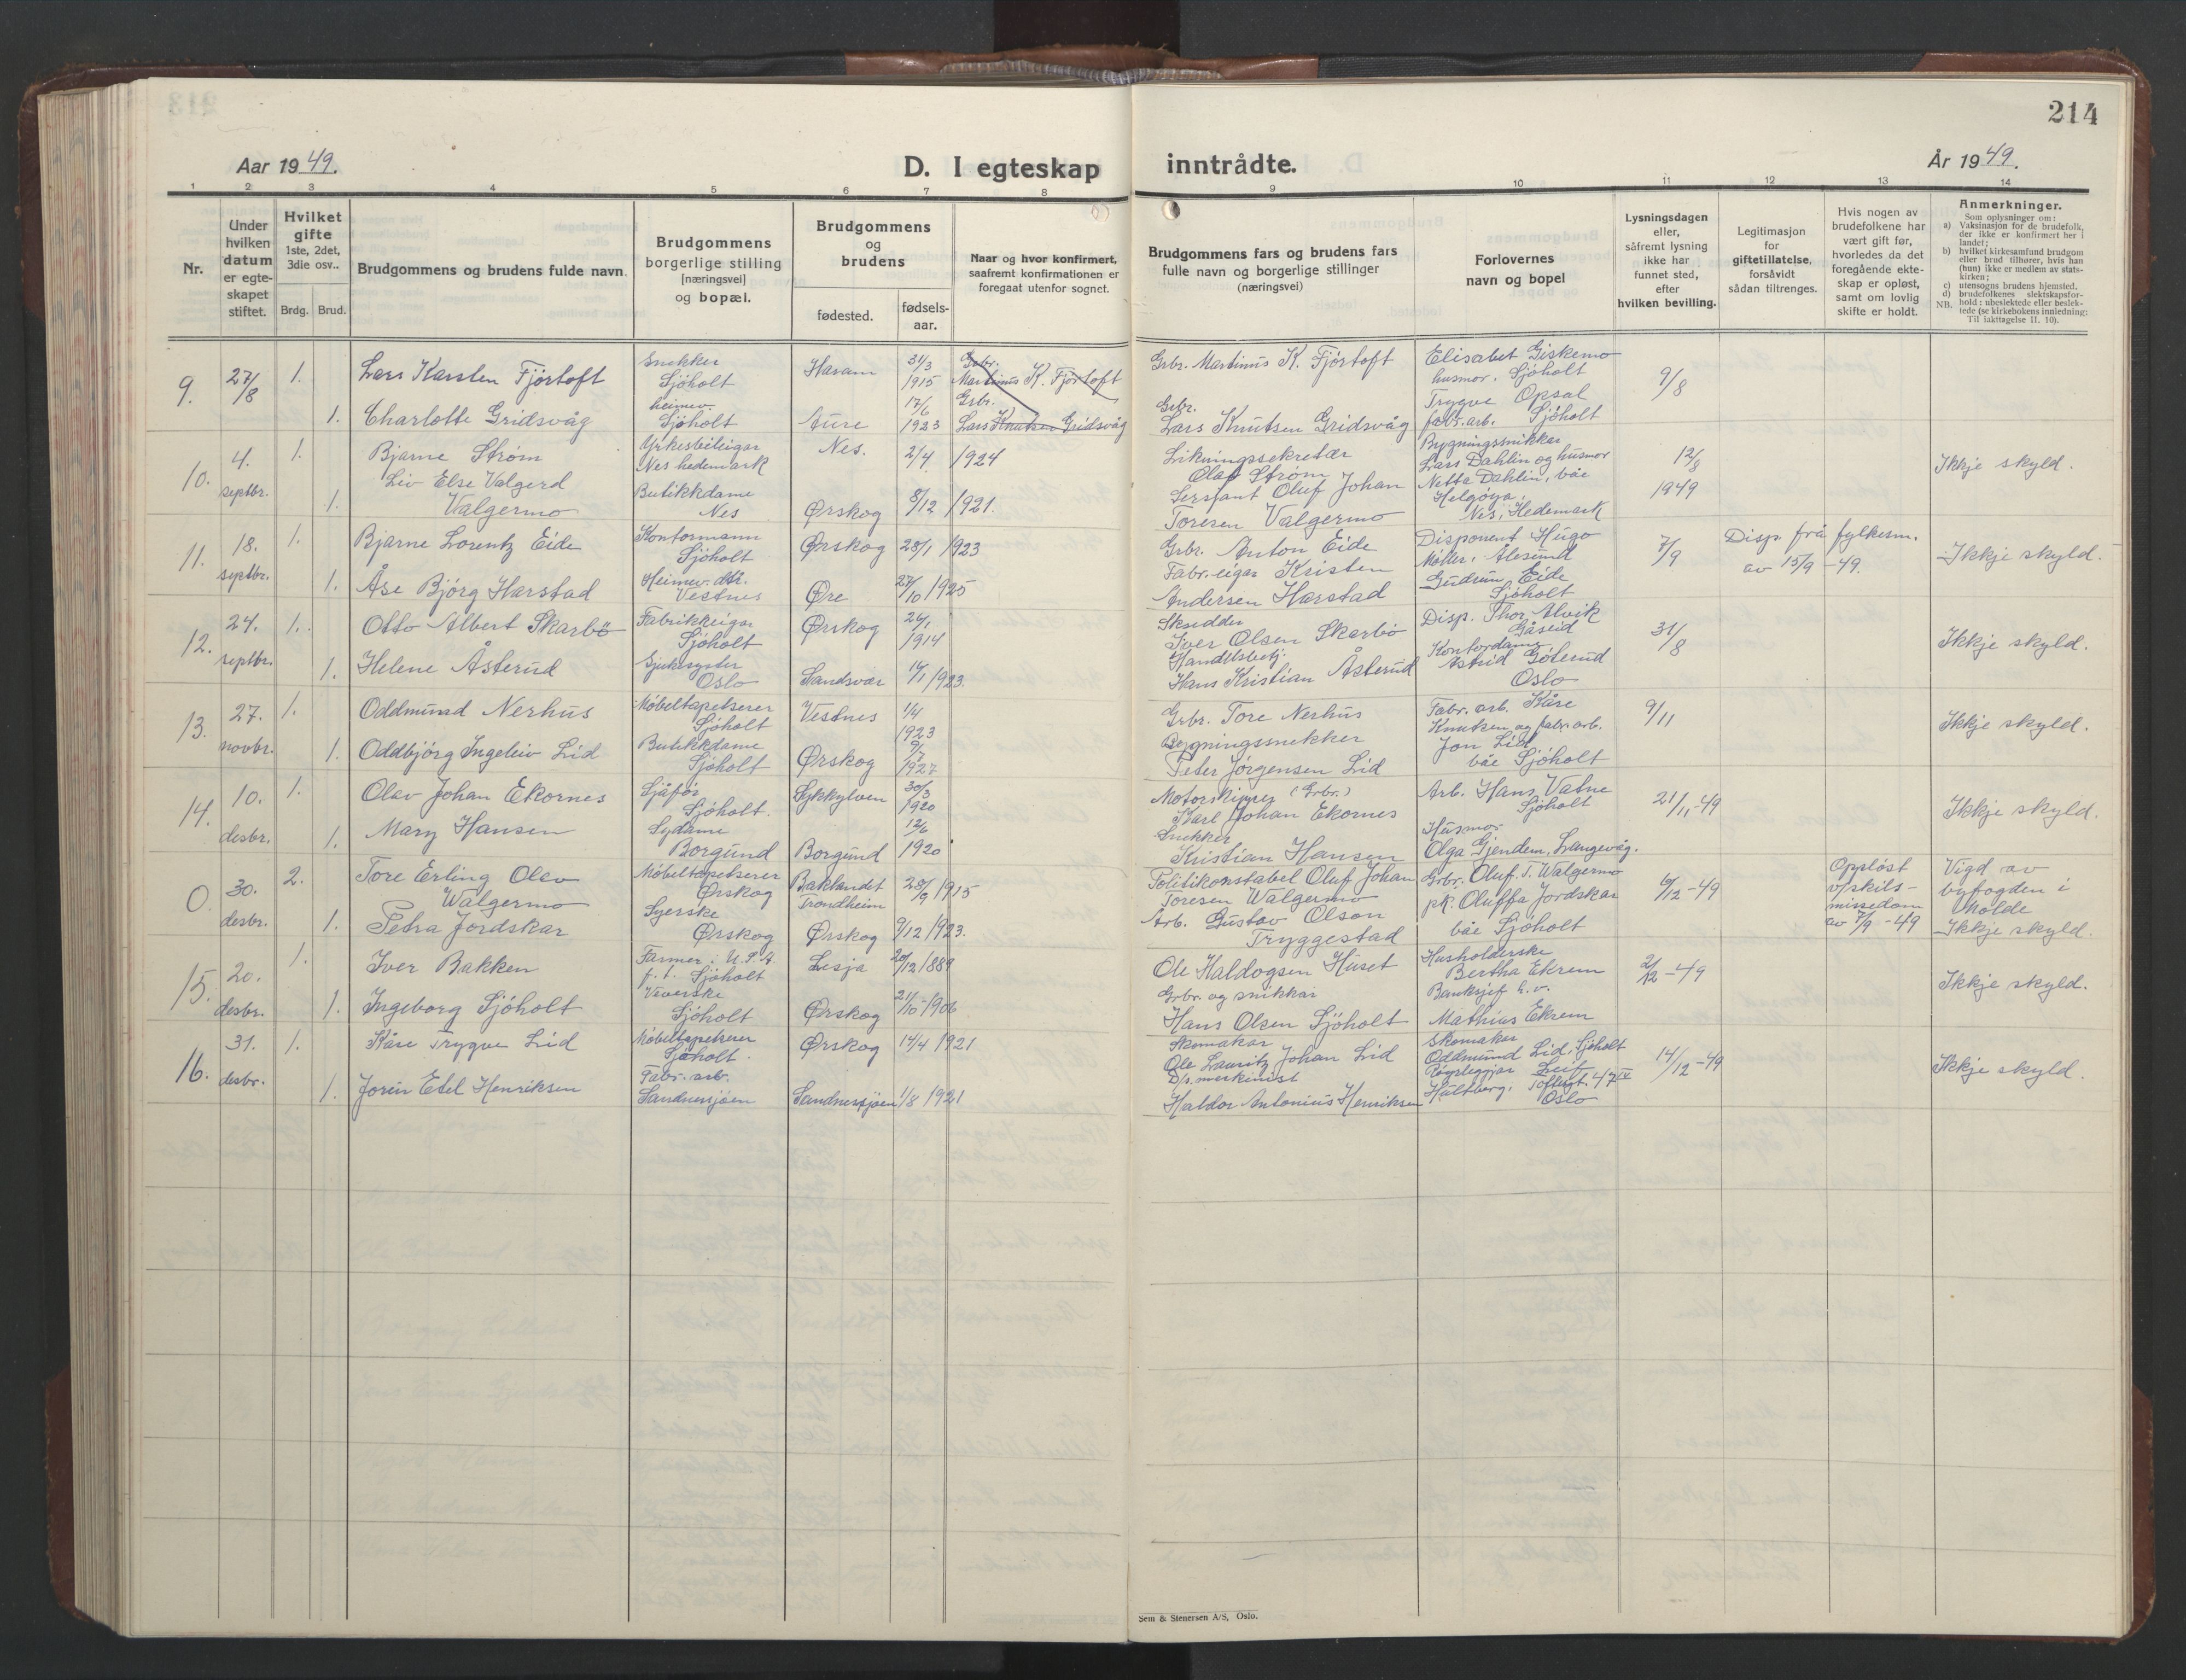 214
Aar 1949.
D. I egteskap
inntrådte.
År 1949.
1 2 3 4 5 6 7 8 9 10 11 12 13 14
Nr.
Under
hvilken
datum
er egte-
skapet
stiftet.
Hvilket
gifte
1ste, 2det,
3die osv..
Brdg. Brud.
Brudgommens og brudens fulde navn.
Brudgommens
borgerlige stilling
[næringsvei]
og bopæl.
Brudgommens
og
brudens
fødested.
fødsels-
aar.
Naar og hvor konfirmert,
saafremt konfirmationen er
foregaat utenfor sognet.
Brudgommens fars og brudens fars
fulle navn og borgerlige stillinger
(næringsvei)
Forlovernes
navn og bopel
Lysningsdagen
eller,
såfremt lysning
ikke har
funnet sted,
efter
hvilken bevilling.
Legitimasjon
for
giftetillatelse,
forsåvidt
sådan tiltrenges.
Hvis nogen av
brudefolkene har
vært gift før,
hvorledes da det
foregående ekte-
skap er opløst,
samt om lovlig
skifte er holdt.
Anmerkninger.
Som oplysninger om:
a) Vaksinasjon for de brudefolk,
der ikke er konfirmert her i
landet;
b) hvilket kirkesamfund brudgom
eller brud tilhører, hvis han
(hun) ikke er medlem av stats-
kirken;
c) utensogns brudens hjemsted.
d) brudefolkenes slektskapsfor-
NB. hold: ubeslektede eller beslek-
tede (se kirkebokens innledning:
Til iakttagelse II. 10).
9. 27/8 1. Lars Karsten Fjörtoft
Snekker
Sjöholt
Haram 31/3 1915
Grbr.
Martinus K. Fjörtoft
Grbr. Martinus K. Fjörtoft
Elisabet Giskemo
husmor. Sjöholt
9/8
1. Charlotte Gridsvåg
heimev.
Sjöholt
Aure 17/6 1923
Grbr.
Lars Knutsen Gridsvåg
Grbr.
Lars Knutsen Gridsvåg
Trygve Opsal
fabr. arb. Sjöholt
10. 4. septbr. 1. Bjarne Strøm
Nes hedemark
Nes. 2/4 1924
Likningssekretær
Olaf Strøm
Bygningssnikker
Lars Dahlin og husmor
12/8 1949
Ikkje skyld.
1. Liv Else Valgerd
Valgermo
Butikkdame
Nes
Ørskog 8/12 1921.
Sersjant Oluf Johan
Toresen Valgermo
Netta Dahlin, båe
Helgøya,
Nes, Hedemark
11. 18. septbr. 1. Bjarne Lorentz Eide
Kontormann
Sjöholt
Ørskog 28/1 1923
Grbr. Anton Eide
Disponent Hugo
Møller, Ålesund
7/9
Disp. frå fylkesm.
av 15/9 -49.
Ikkje skyld.
1. Åse Björg Harstad
Heimev. dtr.
Vestnes
Øre 27/10 1925
Fabr. eigar Kristen
Andersen Harstad
Gudrun Eide
Sjöholt
12. 24. septbr. 1. Otto Albert Skarbö
Fabrikkeigar
Sjöholt
Ørskog 26/1 1914
Iver Olsen Skarbö
Disp. Thor Alvik
Gåseid
31/8
Ikkje skyld.
1. Helene Åsterud
Sjukesyster
Oslo
Sandsvær 1923.
Handelsbetj.
Hans Kristian Åsterud
Kontordame
Astrid Göterud
Oslo
13. 27. novbr. 1. Oddmund Nerhus
Møbeltapetserer
Sjöholt
Vestnes 1/4 1923
Grbr. Tore Nerhus
Fabr. arb. Kåre
Knutsen og fabr. arb.
9/11
Ikkje skyld.
1. Oddbjörg Ingeleiv Lid
Butikkdame
Sjöholt
Ørskog 9/7 1927
Bygningssnekker
Peter Jörgensen Lid
Jon Lid
båe Sjöholt
14. 10. desbr. 1. Olav Johan Ekornes
Sjåför
Sjöholt.
Sykkylven 30/3 1920
Motorskipper (Grbr.)
Karl Johan Ekornes
Arb. Hans Vatne
Sjöholt
21/11-49
Ikkje skyld.
1. Mary Hansen
Sydame
Borgund
Borgund 12/6 1920
Snekker
Kristian Hansen
Husmor
Olga Gjendem, Langevåg.
0. 30. desbr. 2. Tore Erling Olav
Walgermo
Møbeltapetserer
Ørskog
Baklandet
Trondheim
28/9 1915
Politikonstabel Oluf Johan
Toresen Walgermo
Grbr. Oluf T. Walgermo
6/12-49
Oppløst
v/skils-
missedom
av 7/9 -49
Vigd av
byfogden i
Molde
Ikkje skyld.
1. Petra Jordskar
Syerske
Ørskog
Ørskog 9/12 1923.
Arb. Gustav Olson
Tryggestad
pk. Oluffa Jordskar
båe Sjöholt
15. 20. desbr. 1. Iver Bakken
Farmer i U.S.A
f. t. Sjöholt
Lesja 20/12 1889
Ole Haldogsen Huset
Husholderske
Bertha Ekrem
2/12-49
Ikkje skyld.
1. Ingeborg Sjöholt
Veverske
Sjöholt
Ørskog 21/10-1906
Grbr. og snikkar
Hans Olsen Sjöholt
Banksjef h.v.
Mathias Ekrem
16. 31. desbr. 1. Kåre Trygve Lid
Møbeltapetserer
Sjöholt.
Ørskog 14/4 1921
Skomakar
Ole Lauritz Johan Lid
Skomakar
Oddmund Lid, Sjöholt
14/12-49
Ikkje skyld.
1. Jorun Etel Henriksen
Fabr. arb.
Sandnessjøen
Sandnessjøen 1/8 1921
D/s. maskinist
Haldor Antonius Henriksen
Røyrleggjar Leif
Hultberg, Toftegt. 47
Oslo
Sem & Stenersen A/S, Oslo.